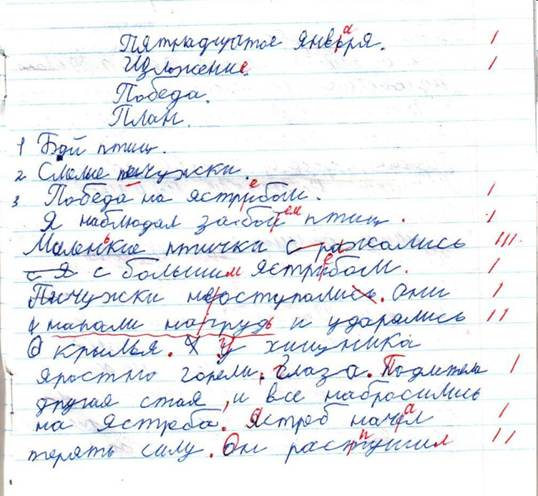 Пятнадцатое января. |
Изложение. |
Победа.
План.
1 Бой птиц.
2 Смелые пичужки.
3 Победа на ястребом. |
Я наблюдал за боем птиц. |
Маленькие птички сражались |||
с большим ястребом. |
Пичужки не оступались. Они |
напали на грудь и ударялись ||
О крылья. У хищника
яростно горели глаза. Подлетела |
другая стая, и все набросились
на ястреба. Ястреб начал |
терять силу. Он распушил ||